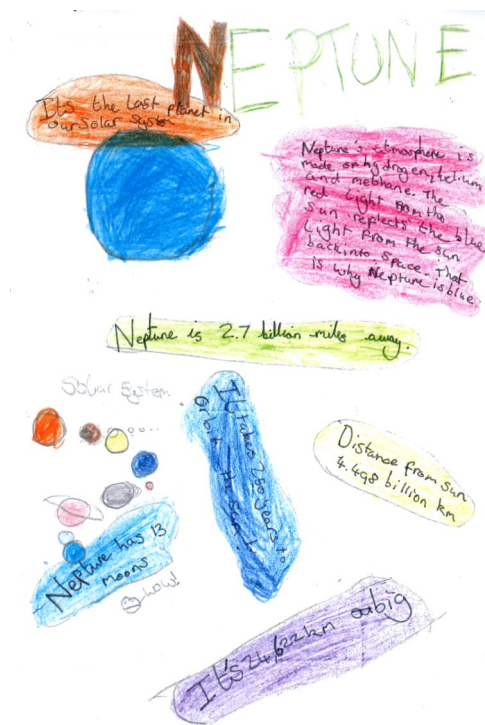 NEPTUNE
It's the last planet in
our Solar System
Neptune's atmosphere is
made of hydrogen, helium
and methane. The
red light from the
sun replects the blue
light from the sun
back into space. That
is why Neptune is blue.
Neptune is 2.7 billion miles away.
Solar System
It takes 260 years to
orbit the sun!
Distance from sun
4.498 billion km
Neptune has 13
moons
wow!
It's 24,622 km big